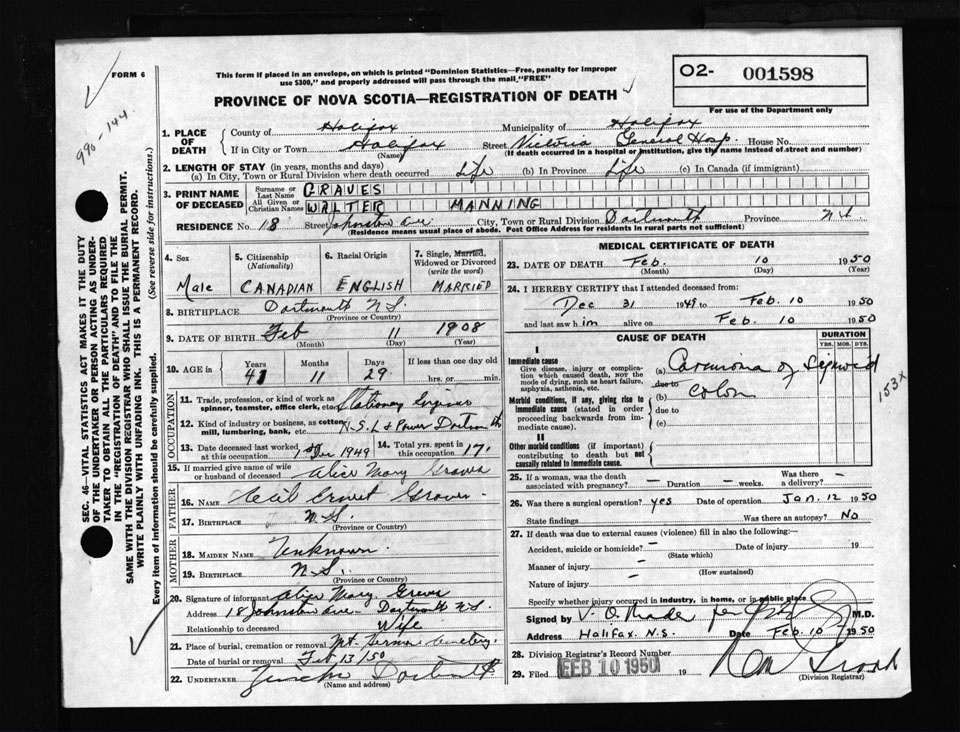 FORM 6
This form if placed in an envelope, on which is printed "Dominion Statistics—Free, penalty for improper
use $300," and properly addressed will pass through the mail "FREE"
O2- 001598
For use of the Department only
PROVINCE OF NOVA SCOTIA—REGISTRATION OF DEATH
990 - 144
SEC. 46—VITAL STATISTICS ACT MAKES IT THE DUTY
OF THE UNDERTAKER OR PERSON ACTING AS UNDER-
TAKER TO OBTAIN ALL THE PARTICULARS REQUIRED
IN THE "REGISTRATION OF DEATH" AND TO FILE THE
SAME WITH THE DIVISION REGISTRAR WHO SHALL ISSUE THE BURIAL PERMIT.
WRITE PLAINLY WITH UNFADING INK. THIS IS A PERMANENT RECORD.
Every item of information should be carefully supplied. (See reverse side for instructions.)
1. PLACE OF DEATH
County of Halifax Municipality of Halifax
If in City or Town Halifax (Name) Street Victoria General Hosp. House No.
(If death occurred in a hospital or institution, give the name instead of street and number)
2. LENGTH OF STAY (in years, months and days)
(a) In City, Town or Rural Division where death occurred Life (b) In Province Life (c) In Canada (if immigrant)
3. PRINT NAME OF DECEASED
Surname or Last Name GRAVES
All Given or Christian Names WALTER MANNING
RESIDENCE No. 18 Street Johnston Ave City, Town or Rural Division Dartmouth Province N.S.
(Residence means usual place of abode. Post Office Address for residents in rural parts not sufficient)
4. Sex Male
5. Citizenship (Nationality) CANADIAN
6. Racial Origin ENGLISH
7. Single, Married, Widowed or Divorced (write the word) MARRIED
8. BIRTHPLACE Dartmouth N.S.
(Province or Country)
9. DATE OF BIRTH Feb 11 1908
(Month) (Day) (Year)
10. AGE in Years 41 Months 11 Days 29 If less than one day old hrs. or min.
OCCUPATION
11. Trade, profession, or kind of work as spinner, teamster, office clerk, etc. Stationary Engineer
12. Kind of industry or business, as cotton mill, lumbering, bank, etc. N.S. L & Power Dartmouth
13. Date deceased last worked at this occupation Dec 1949
14. Total yrs. spent in this occupation 17.
15. If married give name of wife or husband of deceased Alice Mary Graves
FATHER
16. Name Cecil Ernest Graves
17. Birthplace N.S.
(Province or Country)
MOTHER
18. Maiden Name Unknown.
19. Birthplace N.S.
(Province or Country)
20. Signature of informant Alice Mary Graves
Address 18 Johnston Ave. Dartmouth N.S.
Relationship to deceased Wife
21. Place of burial, cremation or removal Mt. Hermon Cemetery.
Date of burial or removal Feb 13/50
22. UNDERTAKER Dartmouth
(Name and address)
MEDICAL CERTIFICATE OF DEATH
23. DATE OF DEATH Feb. 10 1950
(Month) (Day) (Year)
24. I HEREBY CERTIFY that I attended deceased from:
Dec 31 1949 to Feb. 10 1950
and last saw him alive on Feb. 10 1950
CAUSE OF DEATH DURATION
YRS. MOS. DYS.
I
Immediate cause
Give disease, injury or complication which caused death, not the mode of dying, such as heart failure, asphyxia, asthenia, etc.
(a) Carcinoma of Sigmoid
due to
Morbid conditions, if any, giving rise to immediate cause (stated in order proceeding backwards from immediate cause).
(b) Colon
due to
(c)
153X
II
Other morbid conditions (if important) contributing to death but not causally related to immediate cause.
25. If a woman, was the death associated with pregnancy? – Duration – weeks. Was there a delivery? –
26. Was there a surgical operation? yes Date of operation Jan. 12 1950
State findings Was there an autopsy? No
27. If death was due to external causes (violence) fill in also the following:—
Accident, suicide or homicide? – Date of injury 19
(State which)
Manner of injury –
(How sustained)
Nature of injury –
Specify whether injury occurred in industry, in home, or in public place
Signed by V. O. Mader per M.D.
Address Halifax. N.S. Date Feb. 10 1950
28. Division Registrar's Record Number
29. Filed FEB 10 1950 19
(Division Registrar)